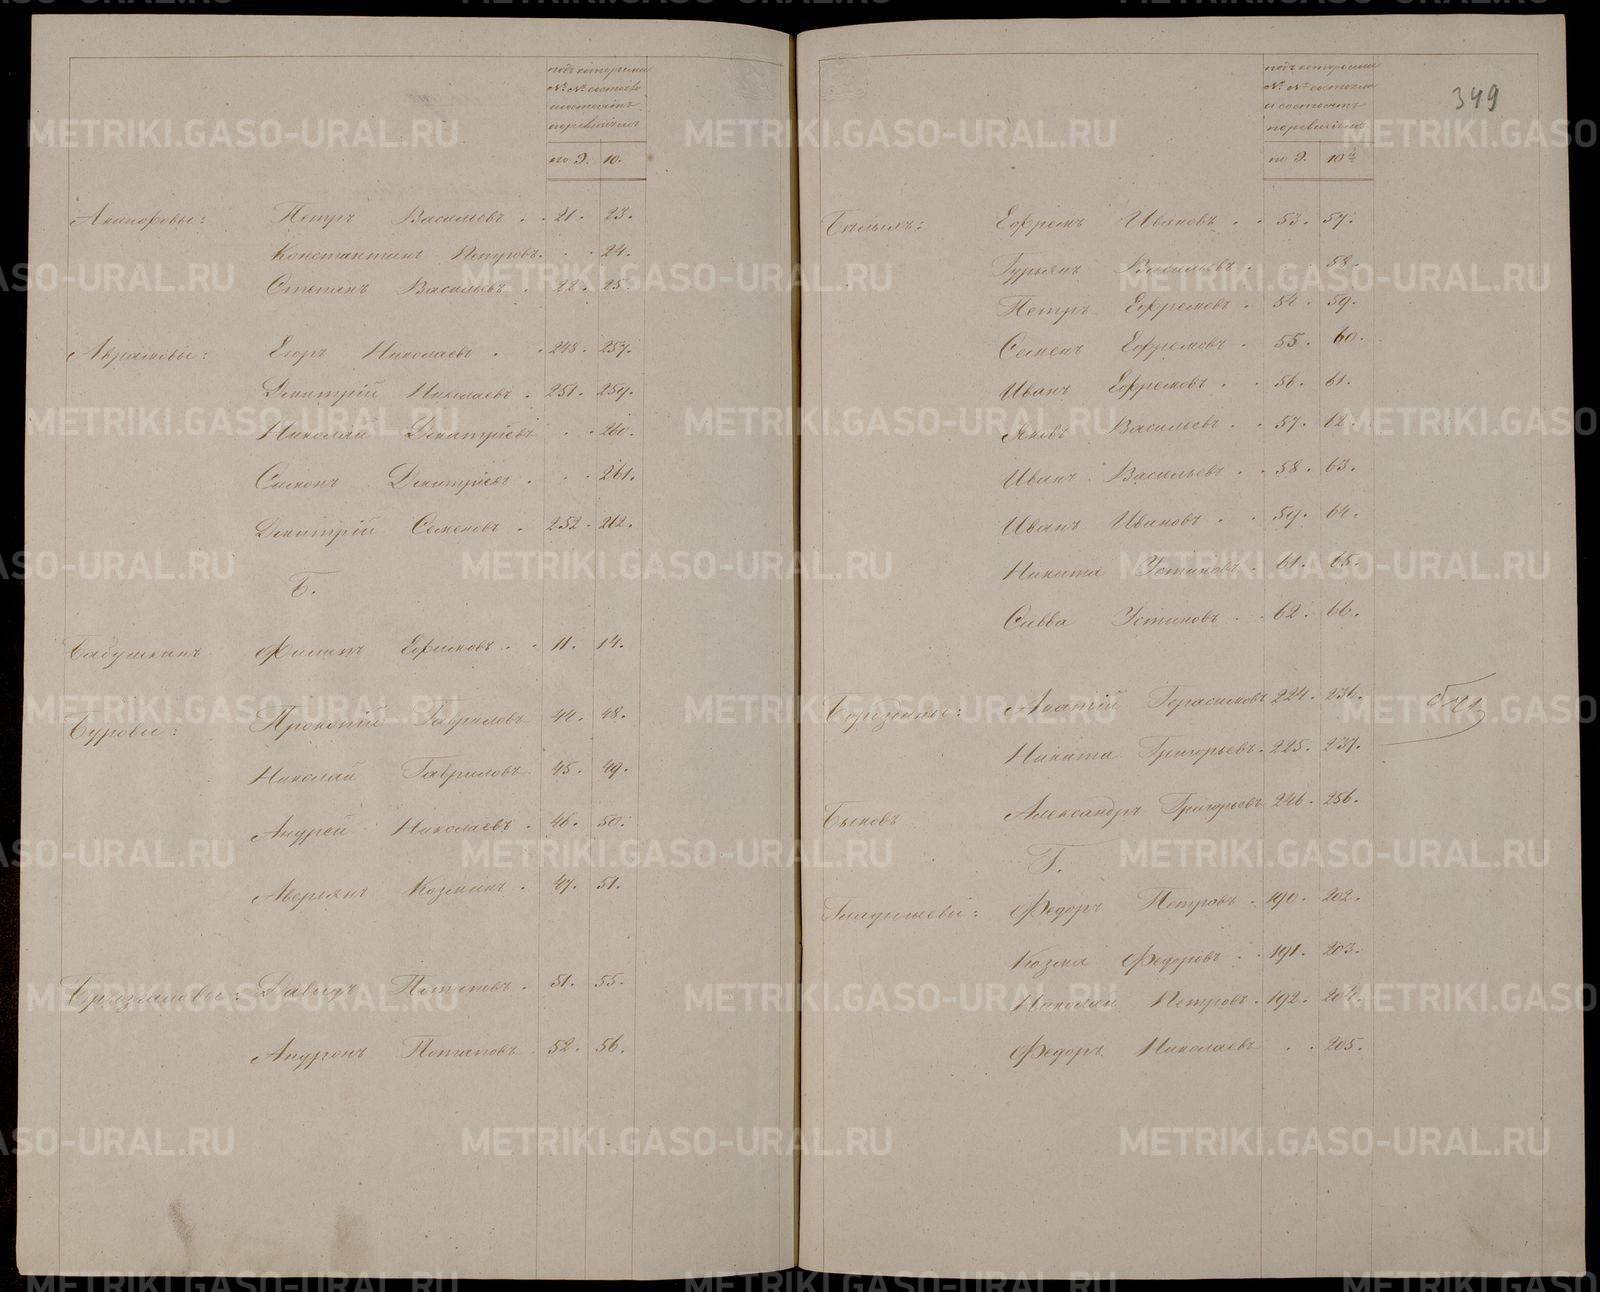 подъ которыми
№№ состояло
и состоитъ
по ревизіямъ
по 9. 10.
Акинфовы: Петръ Васильевъ . . 21. 23.
Константинъ Петровъ. . . 24.
Степанъ Васильевъ . 22. 25.
Аврамовы: Егоръ Николаевъ . . 248. 257.
Дмитрій Николаевъ . 251. 259.
Николай Дмитріевъ . . 260.
Симонъ Дмитріевъ . . . 261.
Дмитрій Семеновъ . 252. 262.
Б.
Бабушкинъ Филипъ Ефимовъ . . 11. 14.
Буровы: Прокопій Гавриловъ 44. 48.
Николай Гавриловъ 45. 49.
Андрей Николаевъ . 46. 50.
Аверьянъ Козминъ . 47. 51.
Давидъ Потаповъ . 51. 55.
Андронъ Потаповъ 52. 56.
349
подъ которыми
№№ состояло
и состоитъ
по ревизіямъ
по 9. 10й
Ефремъ Ивановъ . . 53. 57.
Гурьянъ Васильевъ . . 58.
Петръ Ефремовъ . 54. 59.
Семенъ Ефремовъ . 55. 60.
Иванъ Ефремовъ . . 56. 61.
Яковъ Васильевъ . . 57. 62.
Иванъ Васильевъ . . 58. 63.
Иванъ Ивановъ . . 59. 64.
Никита Устиновъ . 61. 65.
Савва Устиновъ . . 62. 66.
Герасимовъ 224. 236.
Никита Григорьевъ . 225. 237.
Быковъ Александръ Григорьевъ 246. 256.
Г.
Галдышевы: Федоръ Петровъ . 190. 202.
Козма Федоровъ . . 191. 203.
Николай Петровъ . 192. 204.
Федоръ Николаевъ . . 205.
METRIKI.GASO-URAL.RU